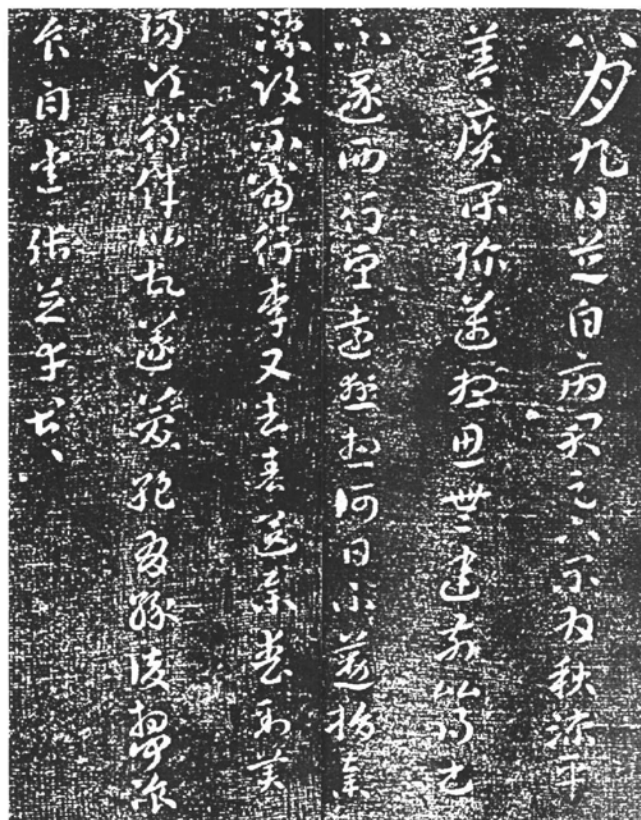 八月九日芝白府君足下不為秋涼平
善廣閑彌邁想思無違前比得書
不遂西行望遠懸想何日不懃捐棄
漂沒不當行李又去春送舉喪到美
陽須待伴比故遂簡絕有緣復相聞飡
食自愛張芝幸甚幸甚